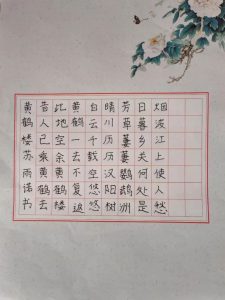 黄鹤楼苏雨诺书
昔人已乘黄鹤去
此地空余黄鹤楼
黄鹤一去不复返
白云千载空悠悠
晴川历历汉阳树
芳草萋萋鹦鹉洲
日暮乡关何处是
烟波江上使人愁